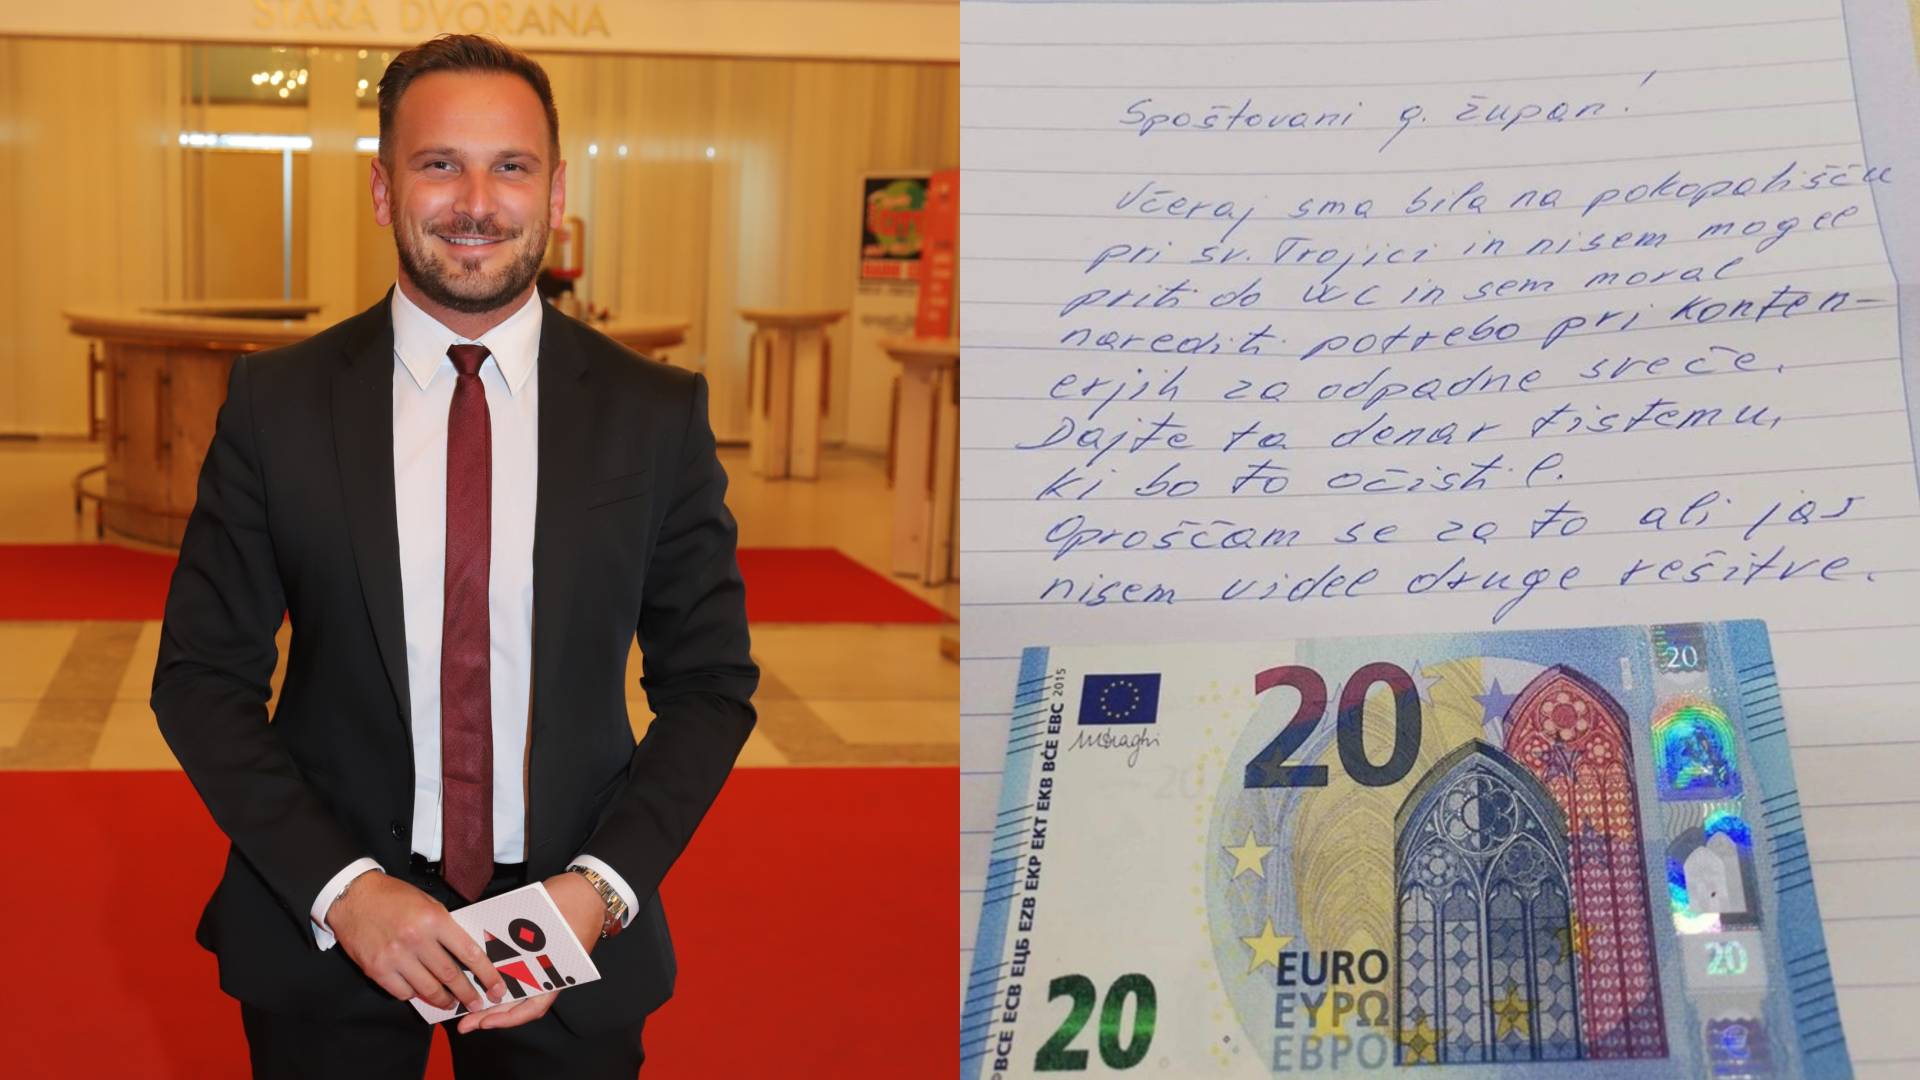 STARA DVORANA
Spoštovani g. župan!
Včeraj sma bila na pokopališču
pri sv. Trojici in nisem mogel
priti do WC in sem moral
narediti potrebo pri konten-
erjih za odpadne sveče.
Dajte ta denar tistemu,
ki bo to očistil.
Oproščam se za to ali jas
nisem videl druge rešitve.
20
20
BCE ECB ЕЦБ EZB EKP EKT EKB BĊE EBC 2015
20
20
EURO
ΕΥΡΩ
ЕВРО